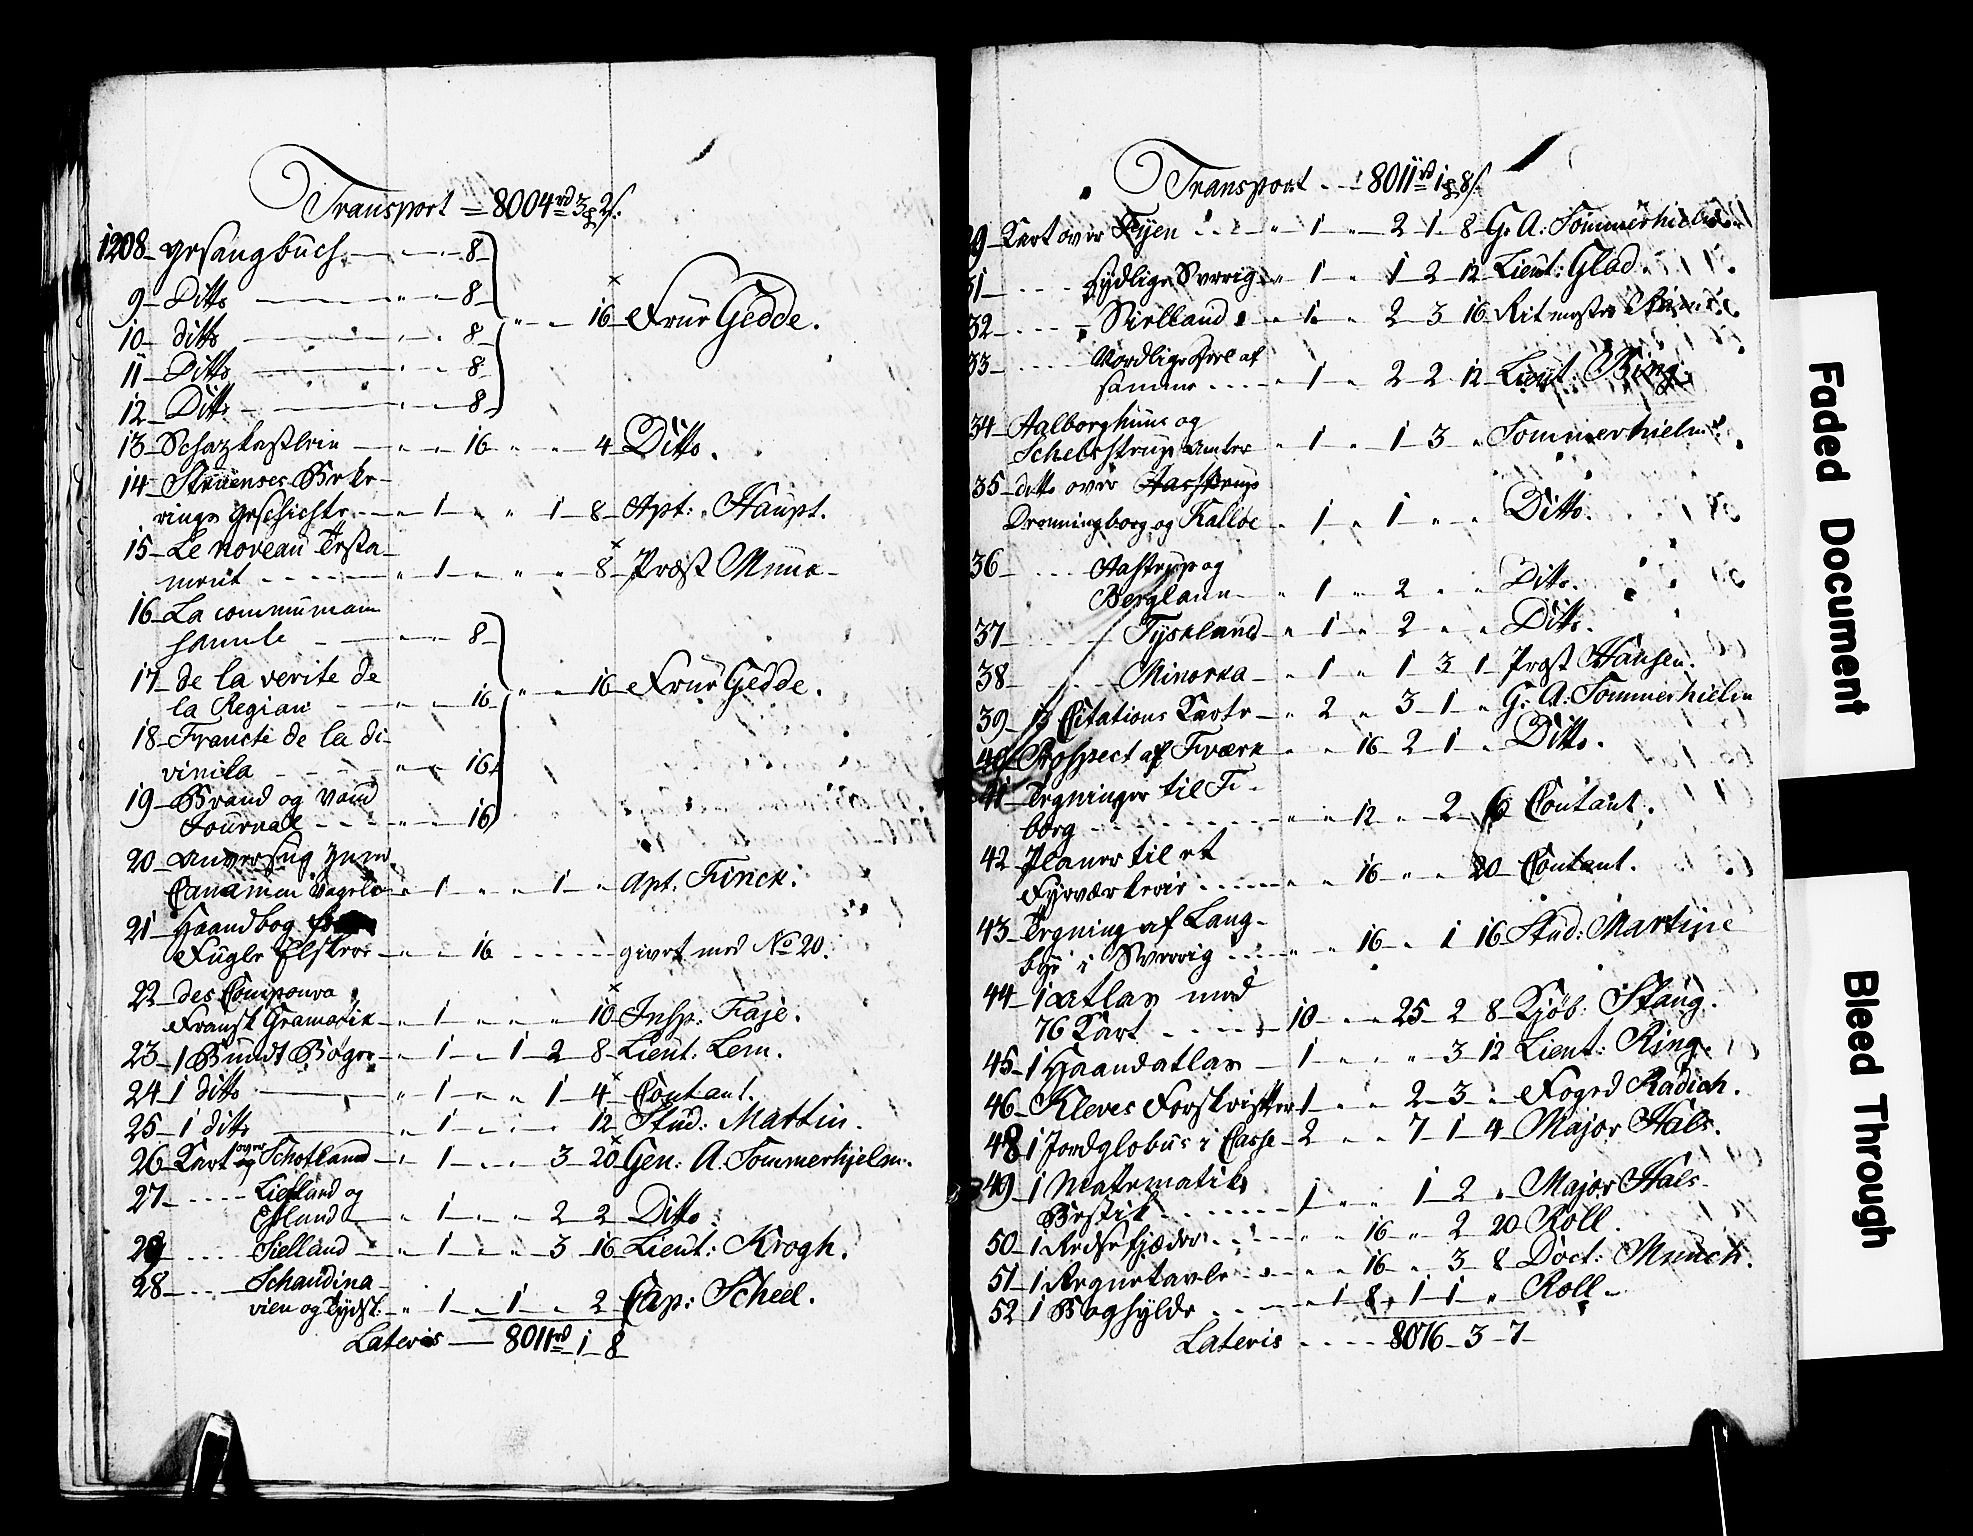 Transport = 8004 rd 3 ₰ 2 s:
1208 gesangbuch 8
9 Ditto 8
10 ditto 8
11 Ditto 8
12 Ditto 8
16 Frue Gedde.
13 Schazkastlein 16 4 Ditto.
14 Struenses Beke-
rings geschichte 1 1 8 Apt: Haupt.
15 Le noveau Testa-
ment 1 8 Præst Munc
16 La communiam
sainte 8
17 de la verite de
la Regian 16 16 Frue Gedde.
18 Francte de la di-
vinita 16
19 Brand og Vand
Journal 16
20
1 1 Apt. Finck.
21 Haandbog
Fugle 16 givet med No 20.
22 des
Fransk Gramatik 1 10 Insp: Faje.
23 1 Bundt Bøger 1 1 2 8 Lieut: Lem.
24 1 ditto 1 1 4 Contant.
25 1 ditto 1 12 Stud: Martin.
26 Kart over Schotland 1 3 20 Gen: A. Sommerhjelm.
27 Liefland og
Estland 1 2 2 Ditto
29 Sielland 1 3 16 Lieut: Krogh.
28 Schandina-
vien og Tydskl. 1 1 2 Cap: Scheel.
Lateris 8011 rd 1 8
Transport 8011 rd 1 ₰ 8 s.
9 Kart over Fyen 1 2 1 8 G. A: Sommerhielm
31 Sydlige Sverrig 1 1 2 12 Lieut: Glad
32 Sielland 1 2 3 16 Ritmester
33 Nordlige Deel af
samme 1 2 2 12 Lieut Bing.
34 Aalborghuus og
Schelstrup Amter 1 1 3 Sommerhielm
35 ditto over Aastrup
Dronningborg og Kalløe 1 1 Ditto.
36 Aastrup og
Berglaun 1 2 Ditto.
37 Tyskland 1 2 Ditto.
38 Minorka 1 1 3 1 Præst Hansen.
39 13 Citations Karte 2 3 1 G. A. Sommerhielm
40 Prospect af Tværk 16 2 1 Ditto.
41 Tegninger til Fi-
borg 12 2 6 Contant.
42 Planer til et
Fyrværkerie 16 20 Contant.
43 Tegning af Lang-
bye i Sverrig 16 1 16 Stud: Martine
44 1 atlas med
76 Kart 10 25 2 8 Kjøb: Stang.
45 1 Haandatlas 1 3 12 Lieut: Ring.
46 Kleves Forskrifter 1 2 3 Foged Radich.
48 1 Jordglobus i Casse 2 7 1 4 Major Hals.
49 1 Matematik
Bestik 1 1 2 Major Hals
50 1 Redse fjæder 16 2 20 Roll.
51 1 Regnetavle 16 3 8 Doct: Munch.
52 1 Boghylde 1 8 1 1 Roll
Lateris 8076 3 7
Faded Document
Bleed Through